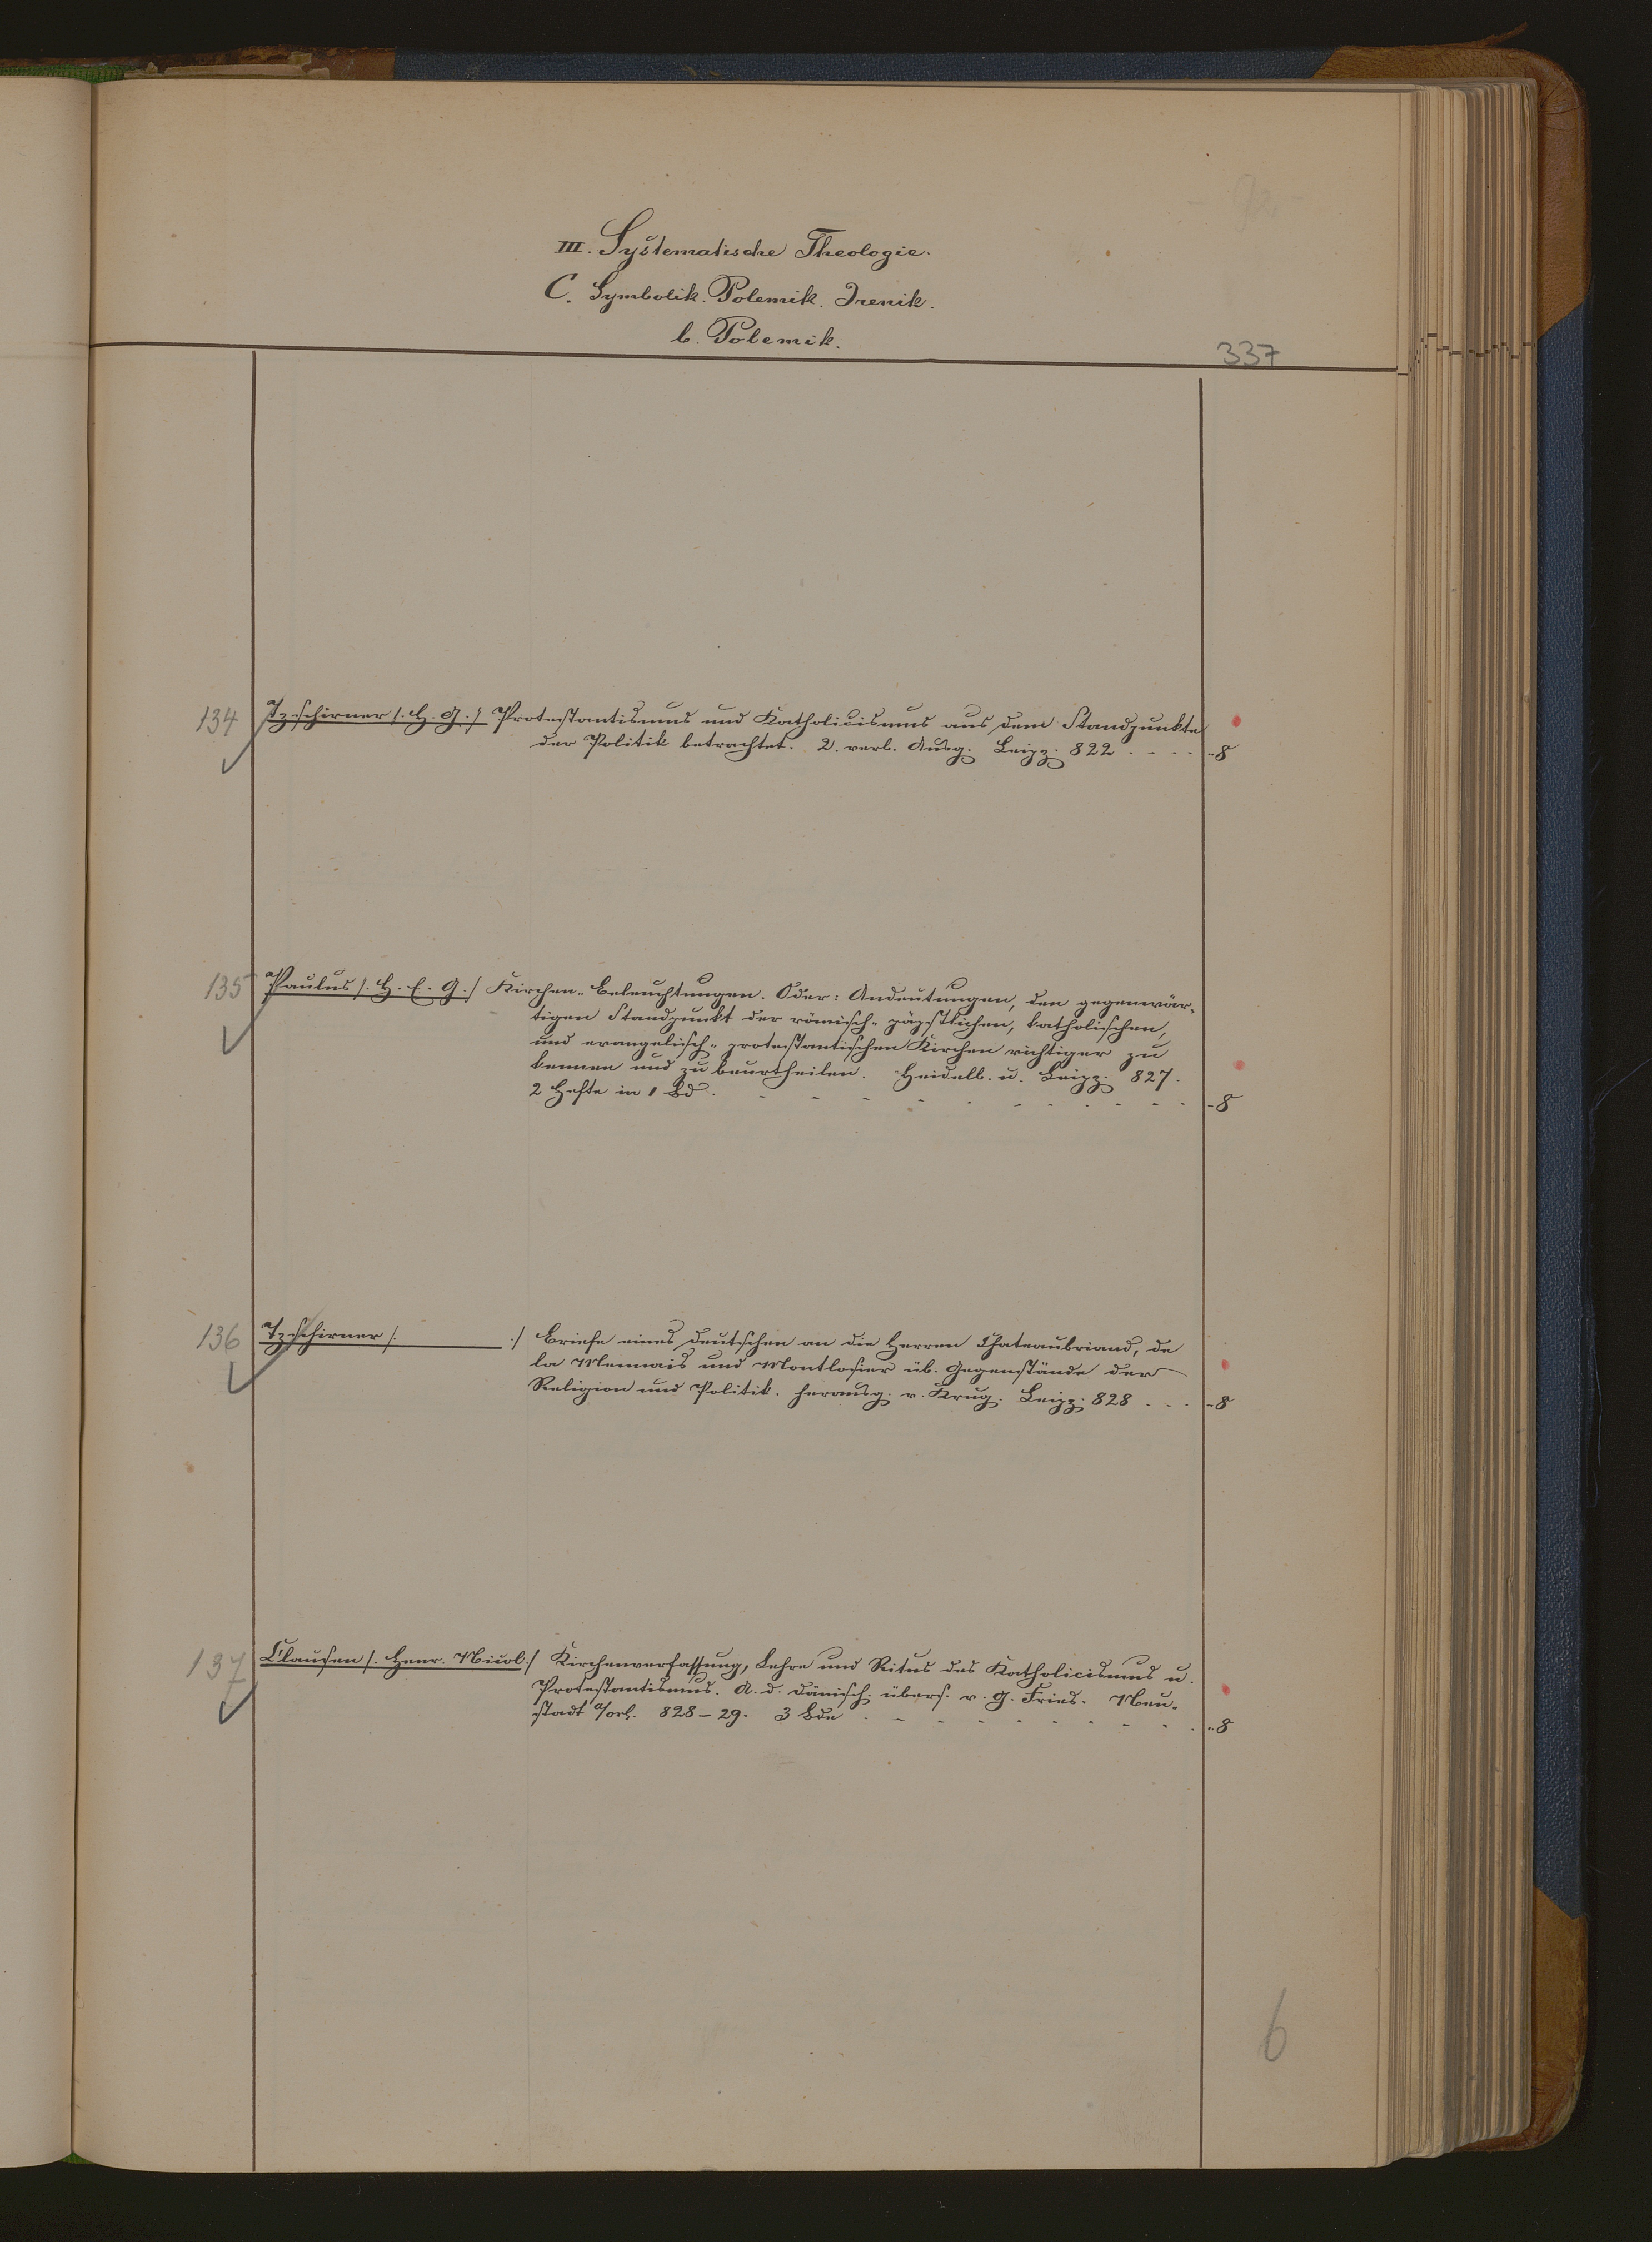 III. Systematische Theologie.
C. Symbolik. Polemik. Irenik.
b. Polemik.
337
134 Tzschirner /. H. G. ./ Protestantismus und Katholicismus aus dem Standpunkte
der Politik betrachtet. 2. verb. Ausg. Leipz. 822 . - - - "8
135 Paulus /. H. E. G. / Kirchen-Beleuchtungen. Oder: Andeutungen, den gegenwär-
tigen Standpunkt der römisch-päpstlichen, katholischen,
und evangelisch-protestantischen Kirchen richtiger zu
kennen und zu beurtheilen. Heidelb. u. Leipz. 827.
2 Hefte in 1 Bd. - - - - - - - - - - "8
136 Tzschirner /. ./ Briefe eines Deutschen an die Herren Chateaubriand, de
la Mennais und Montlosier üb. Gegenstände der
Religion und Politik. herausg. v. Krug. Leipz. 828 . . . "8
137 Clausen /. Henr. Nicol. / Kirchenverfassung, Lehre und Ritus des Katholicismus u.
Protestantismus. A. d. Dänisch. übers. v. G. Fries. Neu-
stadt a/orl. 828-29. 3 Bde . - - - - - - - - "8
6